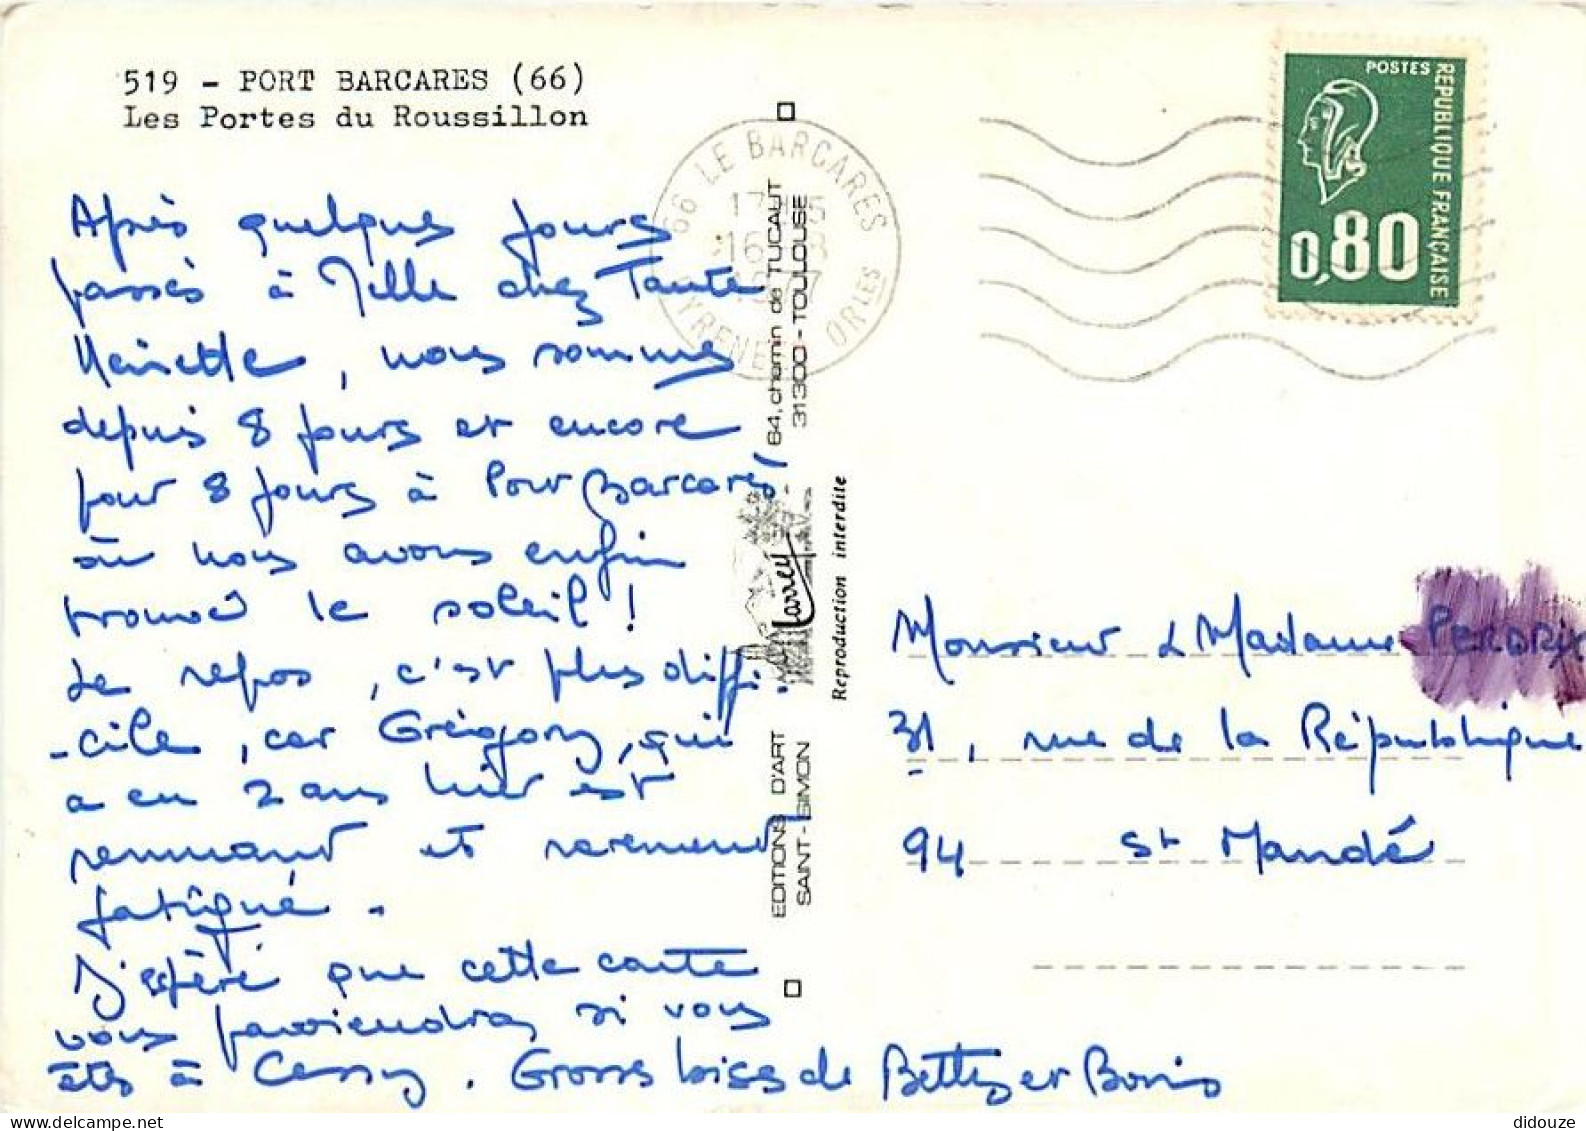 519 - PORT BARCARES (66)
Les Portes du Roussillon
Après quelques jours
passés à Mille chez Tante
Henriette, nous sommes
depuis 8 jours et encore
pour 8 jours à Port Barcarès
où nous avons enfin
trouvé le soleil !
Le repos, c'est plus diffi-
-cile, car Grégory, qui
a eu 2 ans hier est
remuant et rarement
fatigué.
J'espère que cette carte
vous parviendra, si vous
êtes à Cessy. Grosses bises de Betty et Boris
66 LE BARCARES
PYRENEES ORLES
EDITIONS D'ART
SAINT-SIMON
Larrey
64, chemin de TUCAUT
31300 - TOULOUSE
Reproduction interdite
POSTES
REPUBLIQUE FRANÇAISE
0,80
Monsieur & Madame PERDRIX
31, rue de la République
94 St Mandé
didouze